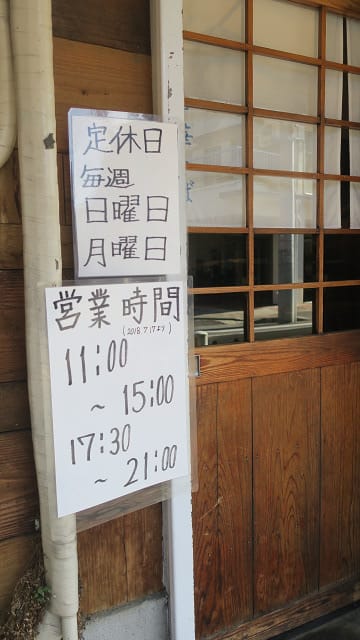 定休日
毎週
日曜日
月曜日
営業時間
(2018 7/17より)
11:00
～15:00
17:30
～21:00